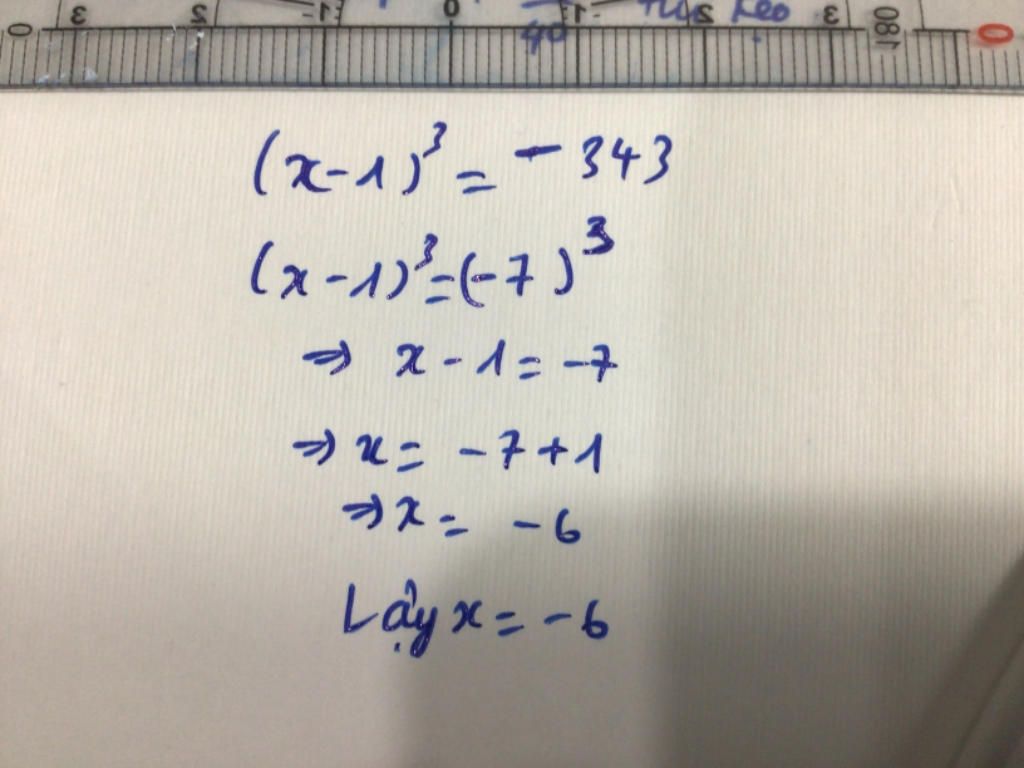 3 2 -1 0 -1 2 3 180 0
0 40
(x-1)³ = -343
(x-1)³ = (-7)³
⇒ x-1 = -7
⇒ x = -7+1
⇒ x = -6
Vậy x = -6